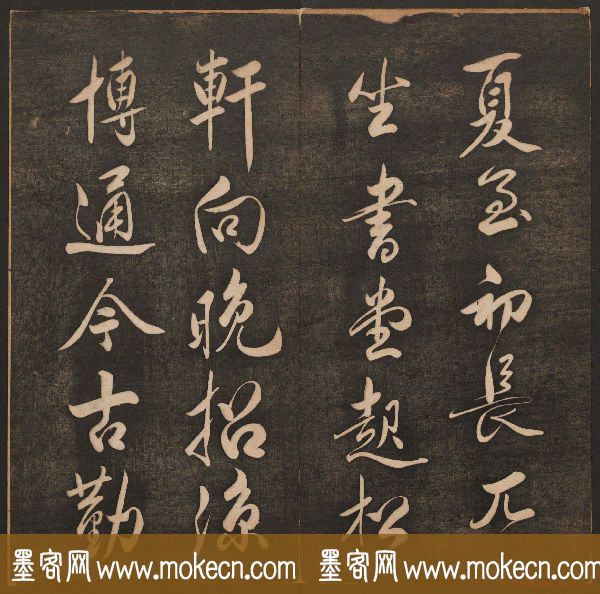 夏至初長兀
坐書堂起松
軒向晚招涼
博通今古勤
墨客网 www.mokecn.com 墨客网 www.mokecn.com